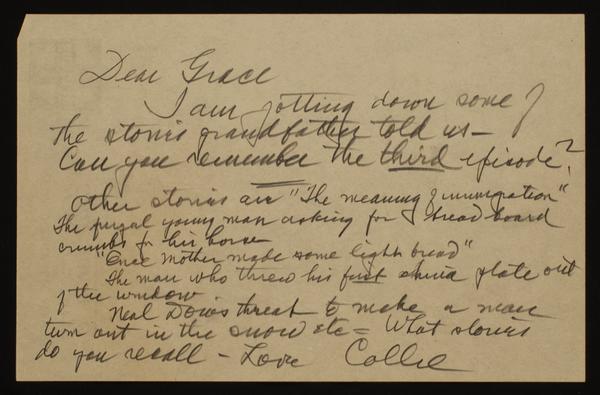 Dear Grace
I am jotting down some of
the stories grandfather told us –
Can you remember the third episode?
Other stories are "The meaning of immigration"
The frugal young man asking for bread board
crumbs for his horse
"Once Mother made some light bread"
The man who threw his first china plate out
of the window
Neal Dow's threat to make a man
turn out in the snow etc = What stories
do you recall – Love Collie